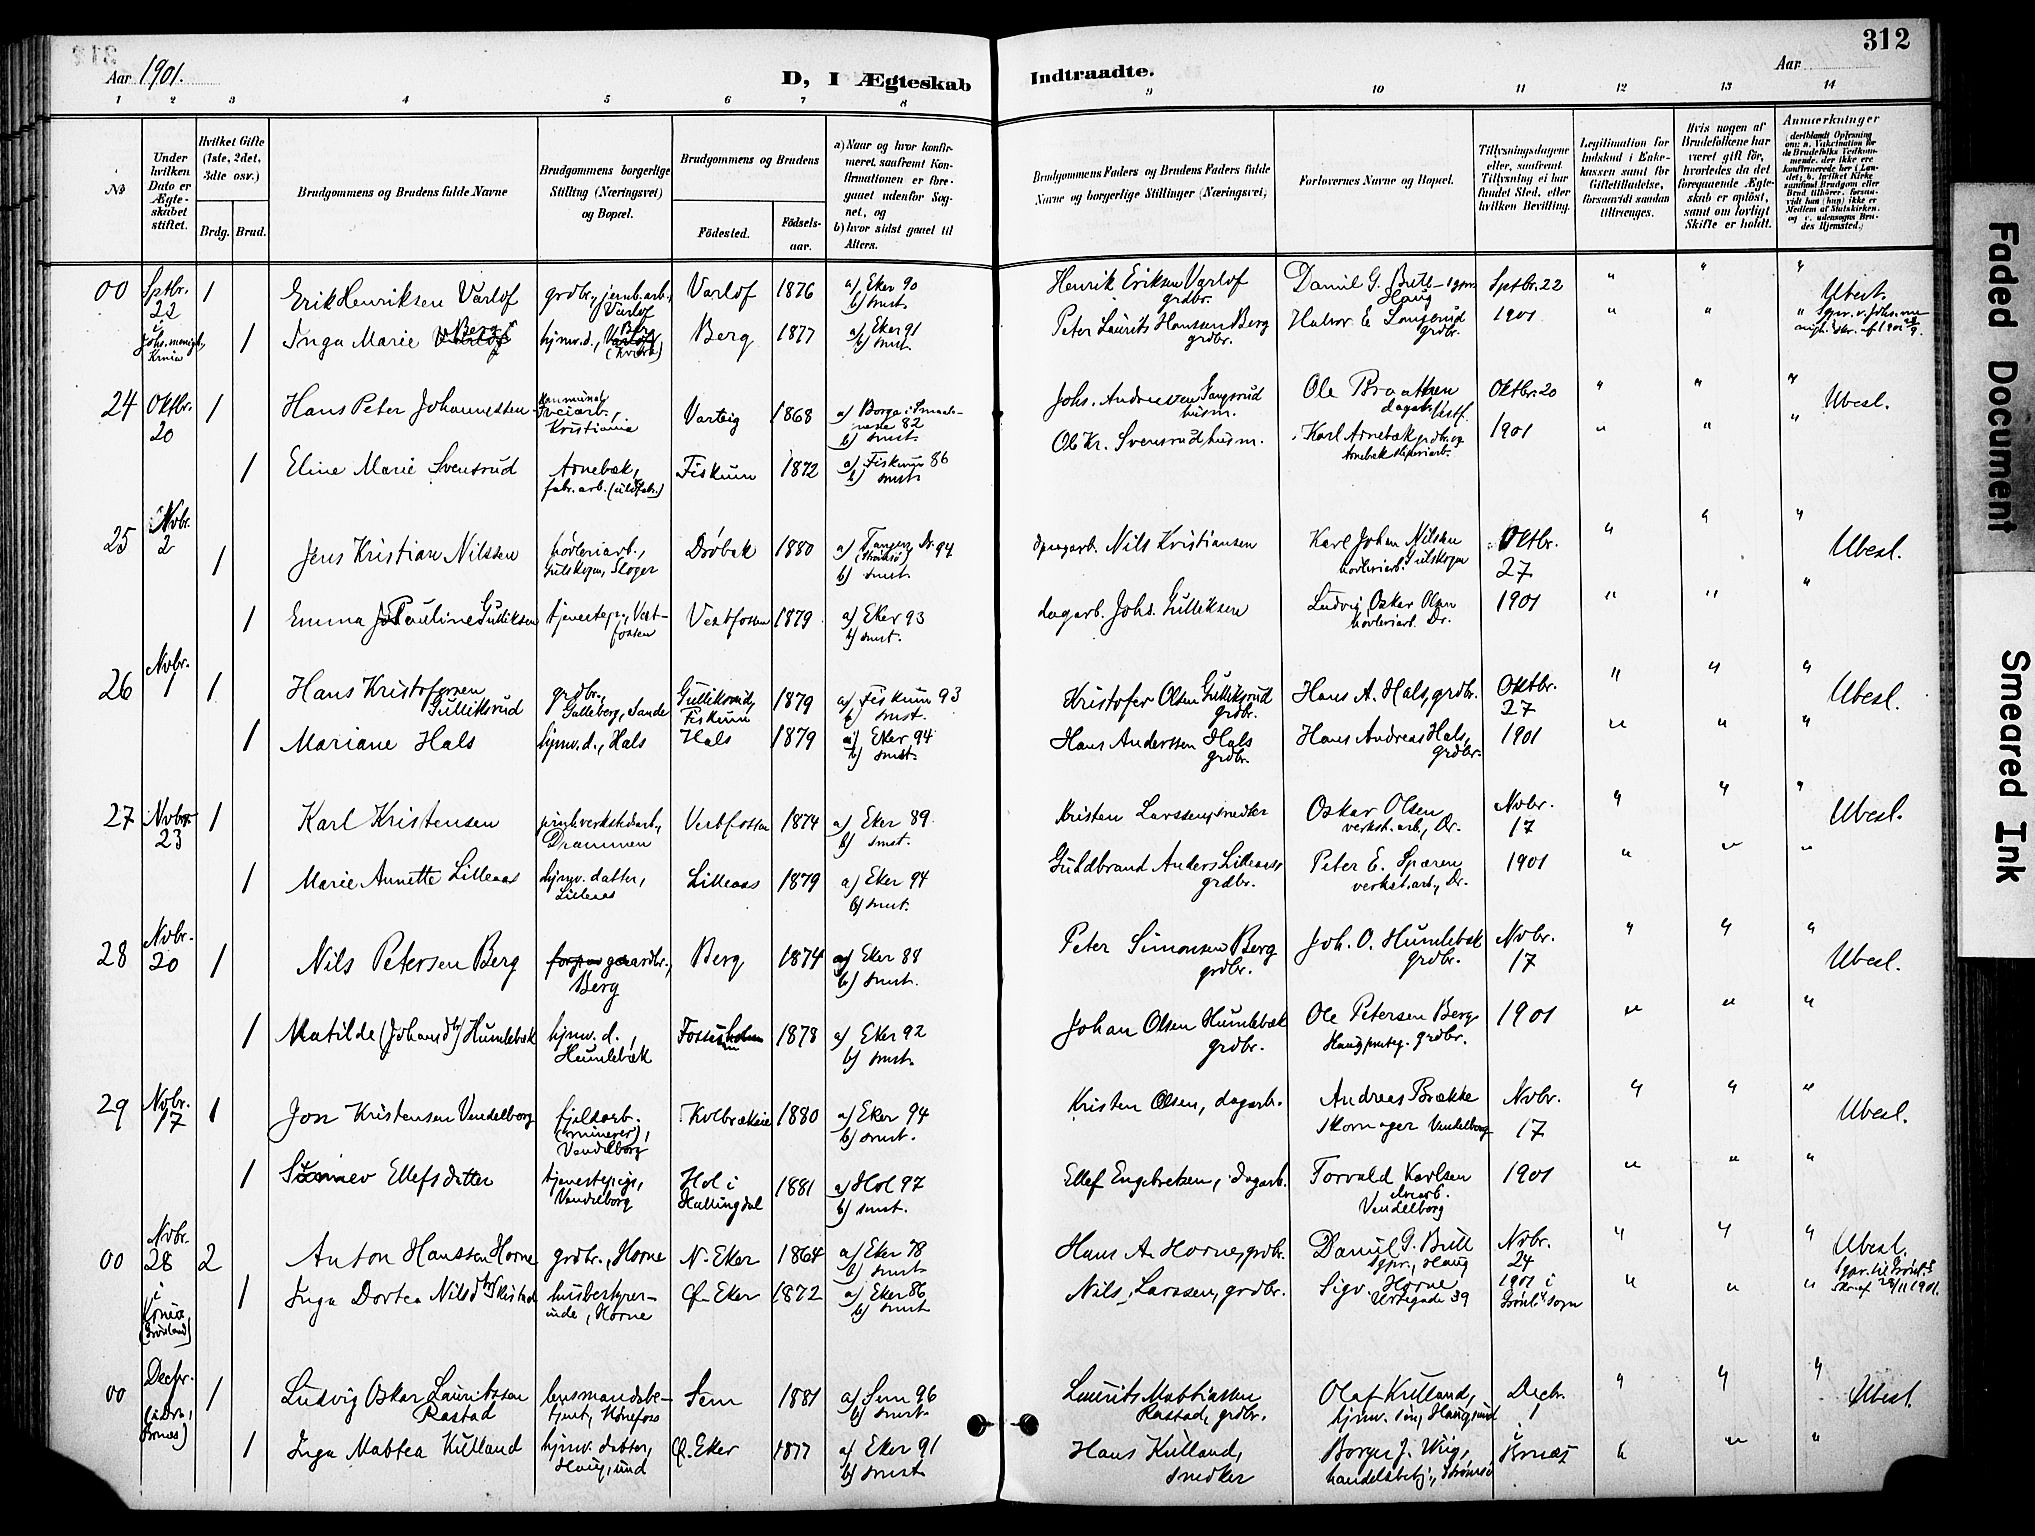 312
Aar 1901.
D, I Ægteskab Indtraadte.
Aar
1 2 3 4 5 6 7 8 9 10 11 12 13 14
No
Under hvilken Dato er Ægteskabet stiftet.
Hvilket Gifte (1ste, 2det, 3die osv.)
Brdg. Brud.
Brudgommens og Brudens fulde Navne
Brudgommens borgerlige Stilling (Næringsvei) og Bopæl.
Brudgommens og Brudens
Fødested. Fødselsaar.
a) Naar og hvor konfirmeret, saafremt Konfirmationen er foregaaet udenfor Sognet, og
b) hvor sidst gaaet til Alters.
Brudgommens Faders og Brudens Faders fulde Navne og borgerlige Stillinger (Næringsvei)
Forlovernes Navne og Bopæl.
Tillysningsdagene eller, saafremt Tillysning ei har fundet Sted, efter hvilken Bevilling.
Legitimation for Indskud i Enkekassen samt for Giftetilladelse, forsaavidt saadan tiltrænges.
Hvis nogen af Brudefolkene har været gift før, hvorledes da det foregaaende Ægteskab er opløst, samt om lovligt Skifte er holdt.
Anmærkninger
00 Sptbr. 22 1 Erik Henriksen Varlof grdbr., jernb.arb., Varlof Varlof 1876 a) Eker 90 b) smst. Henrik Eriksen Varlof grdbr. Daniel G. Haug Sptbr. 22 " " "
1 Inga Marie Berg hjmv.d., Berg 1877 a) Eker 91 b) smst. Peter Laurits Hansen Berg grdbr. Halvor E. grdbr. 1901 " " "
24 Oktbr. 20 1 Hans Peter Johannessen Kristiania Varteig 1868 a) Borge i 82 b) smst. Johs. Andreassen husm. Ole Braathen Oktbr. 20 " " " Ubesl.
1 Eline Marie Svensrud Arnebæk, fabr.arb. Fiskum 1872 a) Fiskum 86 b) smst. Ole Kr. Svensrud husm. Karl Arnebæk 1901 " " "
25 Nvbr. 2 1 Jens Kristian Nilssen høvleriarb., Gulskogen, Drøbak 1880 a) Tangen, Dr. 94 b) smst. Nils Kristiansen Karl Johan Nilsen høvleriarb. Gulskogen Oktbr. 27 " " " Ubesl.
1 Emma Pauline Gulliksen tjenestep., Vestfossen Vestfossen 1879 a) Eker 93 b) smst. dagarb. Johs. Gulliksen Ludvig Oskar Olsen høvleriarb. Dr. 1901 " " "
26 Nvbr. 1 1 Hans Kristofersen Gulliksrud grdbr., Galleberg, Sande Gulliksrud, Fiskum 1879 a) Fiskum 93 b) smst. Kristofer Olsen Gulliksrud grdbr. Hans A. Hals, grdbr. Oktbr. 27 " " " Ubesl.
1 Mariane Hals hjmv.d., Hals Hals 1879 a) Eker 94 b) smst. Hans Anderssen Hals grdbr. Hans Andreas Hals, grdbr. 1901 " " "
27 Nvbr. 23 1 Karl Kristensen Drammen Vestfossen 1874 a) Eker 89. b) smst. Kristen Larssen, smedker Oskar Olsen verkst.arb., Dr. Nvbr. 17 " " " Ubesl.
1 Marie Annette Lilleaas hjmv. datter, Lilleaas Lilleaas 1879 a) Eker 94 b) smst. Guldbrand Anders. Lilleaas grdbr. Peter E. Spæren verkst.arb., Dr. 1901 " " "
28 Nvbr. 20 1 Nils Petersen Berg gaardbr., Berg Berg 1874 a) Eker 88 b) smst. Peter Simonsen Berg grdbr. Joh. O. Humlebæk grdbr. Nvbr. 17 " " " Ubesl.
1 Matilde (Johansdtr) Humlebæk hjmv. d., Humlebæk 1878 a) Eker 92 b) smst. Johan Olsen Humlebæk grdbr. Ole Petersen Berg grdbr. 1901 " " "
29 Nvbr. 17 1 Jon Kristensen Vendelborg fjeldarb. (minerer), Vendelborg Kolbrække 1880 a) Eker 94 b) smst. Kristen Olsen, dagarb. Andreas Brække Skomager Vendelborg Nvbr. 17 " " " Ubesl.
1 Ellefsdatter tjenestepige, Vendelborg Hol i Hallingdal 1881 a) Hol 97 b) smst. Ellef Engebretsen, dagarb. Torvald Karlsen Vendelborg 1901 " " "
00 Nvbr. 28 i Kr.nia (Grønland) 2 Anton Hanssen Horne grdbr., Horne N. Eker 1864 a) Eker 78 b) smst. Hans A. Horne, grdbr. Daniel G. sgpr., Haug Nvbr. 24 " " " Ubesl.
1 Inga Dortea Nilsdtr Skistad husbestyrerinde, Horne Ø. Eker 1872 a) Eker 86 b) smst. Nils Larssen, grdbr. Sigv. Horne Urtegade 39 1901 i Grønl. sogn " " "
00 Decbr. 1 1 Ludvig Oskar Lauritssen Rastad lensmandsbetjent, Hønefoss Sem 1881 a) Sem 96 b) smst. Laurits Mathiassen Rastad, grdbr. Olaf Kulland, hjmv. søn, Haugsund Decbr. 1 " " " Ubesl.
1 Inga Mathea Kulland hjmv. datter, Haugsund Ø. Eker 1877 a) Eker 91 b) smst. Hans Kulland, snedker Borger J. Wiig, handelsbetj., Strømsø Brnæs " " "
Faded Document
Smeared Ink